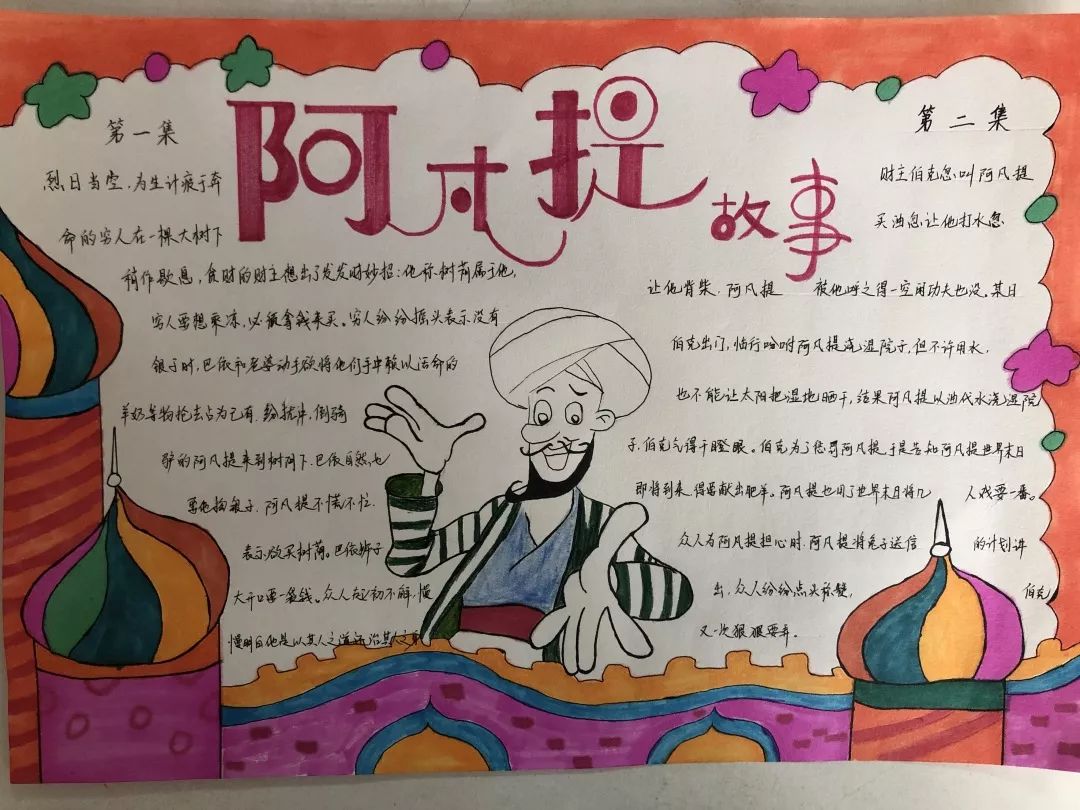 阿凡提
故事
第一集
烈日当空,为生计疲于奔
命的穷人在一棵大树下
稍作歇息,贪财的财主想出了发财妙招:他称树荫属于他,
穷人要想乘凉,必须拿钱来买。穷人纷纷摇头表示没有
银子时,巴依和老婆动手欲将他们手中赖以活命的
羊奶等物抢去占为己有,纷扰中,倒骑
驴的阿凡提来到树阴下.巴依自然也
要他掏银子,阿凡提不慌不忙
表示欲买树荫。巴依狮子
大开口要一袋钱。众人起初不解,慢
慢明白他是以其人之道还治其人之身
第二集
财主伯克忽叫阿凡提
买油忽让他打水忽
让他背柴,阿凡提 被他呼之得一空闲功夫也没,某日
伯克出门,临行吩咐阿凡提浇湿院子,但不许用水,
也不能让太阳把湿地晒干,结果阿凡提以油代水浇湿院
子,伯克气得干瞪眼。伯克为了惩罚阿凡提于是告知阿凡提世界末日
即将到来,得要献出肥羊。阿凡提也用了世界末日将 人戏耍一番。
众人为阿凡提担心时,阿凡提将兔子送信 的计划讲
出,众人纷纷点头称赞, 伯克
又一次狠狠耍弄。